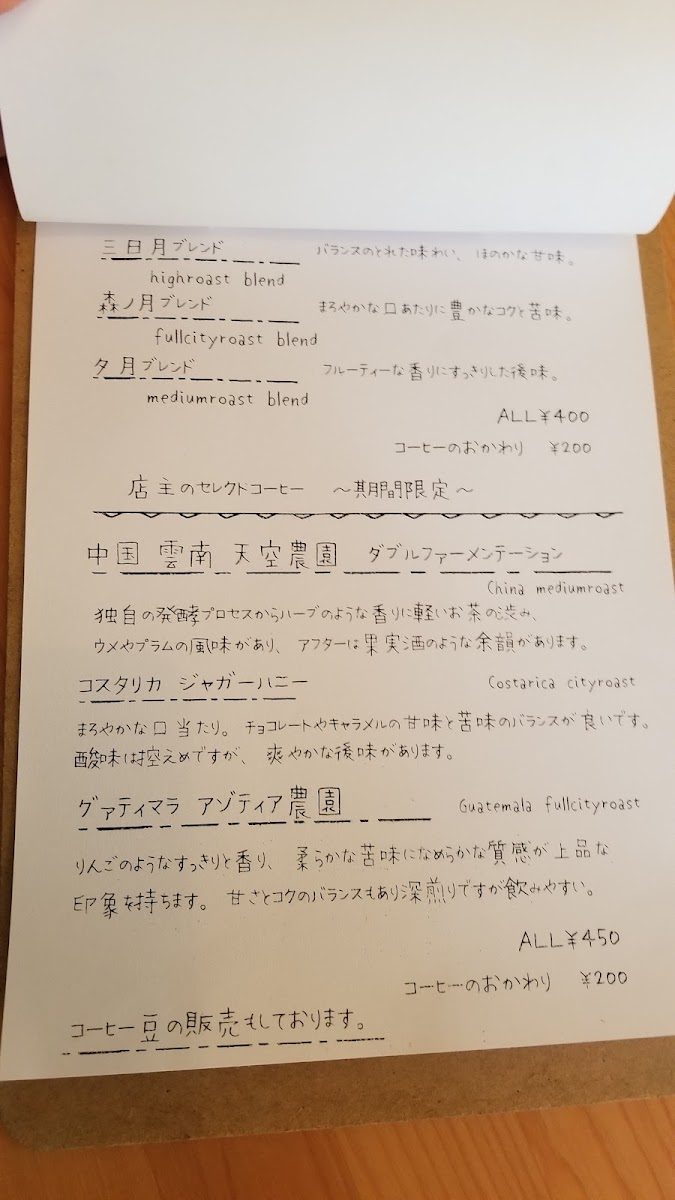 三日月ブレンド バランスのとれた味わい、ほのかな甘味。
highroast blend
森ノ月ブレンド まろやかな口あたりに豊かなコクと苦味。
fullcityroast blend
夕月ブレンド フルーティーな香りにすっきりした後味。
mediumroast blend
ALL¥400
コーヒーのおかわり ¥200
店主のセレクトコーヒー 〜期間限定〜
中国 雲南 天空農園 ダブルファーメンテーション
China mediumroast
独自の発酵プロセスからハーブのような香りに軽いお茶の渋み、
ウメやプラムの風味があり、アフターは果実酒のような余韻があります。
コスタリカ ジャガーハニー Costarica cityroast
まろやかな口当たり。チョコレートやキャラメルの甘味と苦味のバランスが良いです。
酸味は控えめですが、爽やかな後味があります。
グァティマラ アゾティア農園 Guatemala fullcityroast
りんごのようなすっきりと香り、柔らかな苦味になめらかな質感が上品な
印象を持ちます。甘さとコクのバランスもあり深煎りですが飲みやすい。
ALL¥450
コーヒーのおかわり ¥200
コーヒー豆の販売もしております。